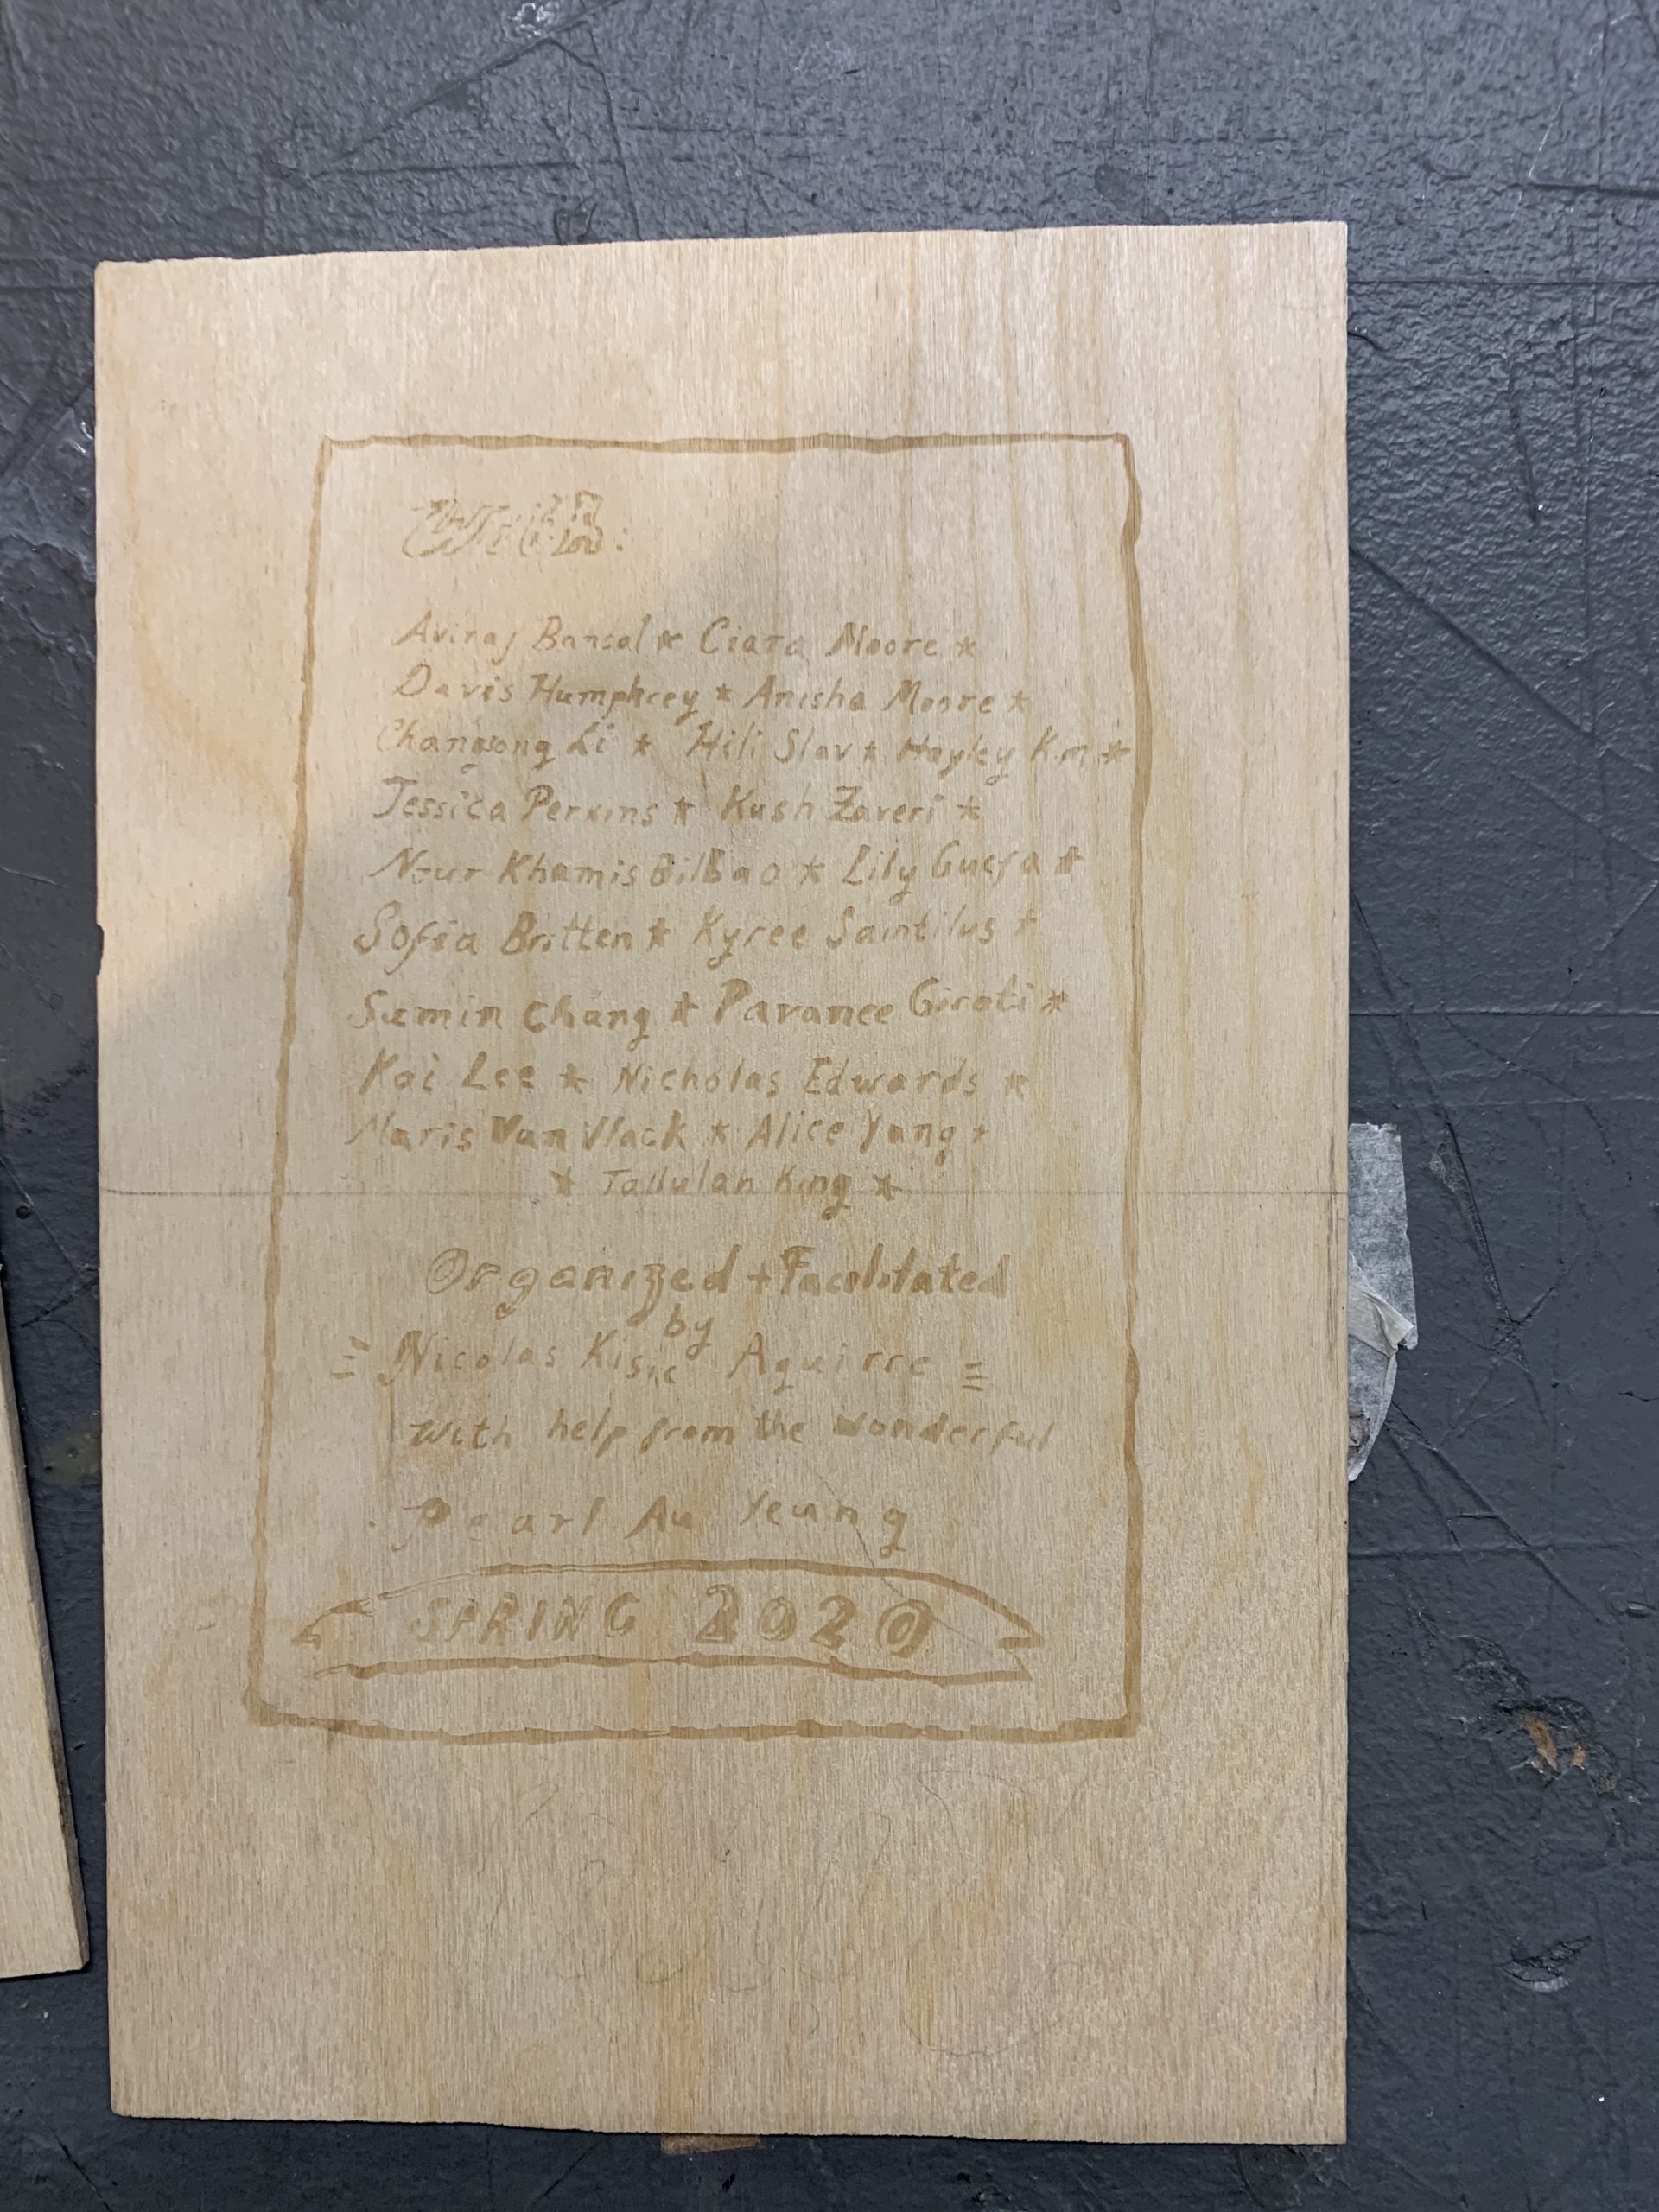 Aviraj Bansal * Ciara Moore *
Davis Humphrey * Anisha Moore *
Changsong Li * Hili Slav * Hayley Kim *
Jessica Perkins * Kush Zaveri *
Nour Khamis Bilbao * Lily *
Sofia Britten * Kyree Saintilus *
Sumin Chang * Paranee *
Kai Lee * Nicholas Edwards *
Maris Van Vlack * Alice Yang *
* Tallulah King *
Organized + Facilitated
by
= Nicolas Kisic Aguirre =
With help from the wonderful
Pearl Au Yeung
SPRING 2020